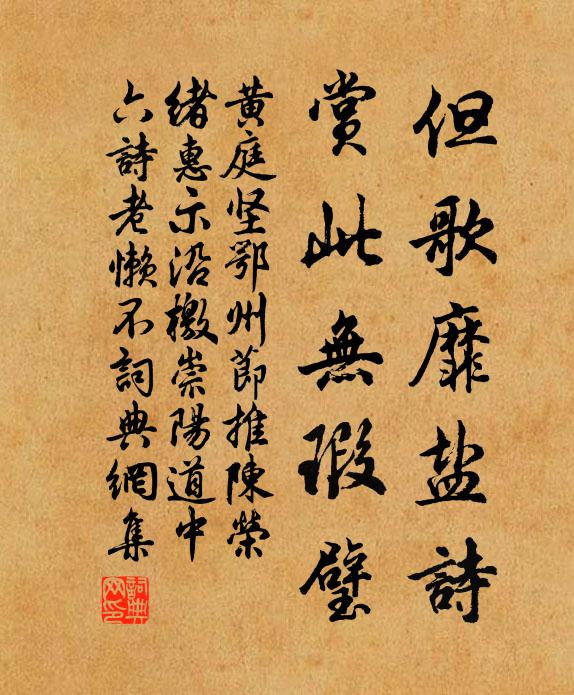 但歌靡盐詩
賞此無瑕璧
黄庭坚鄂州節推陳榮
绪惠示沿檄崇陽道中
六詩老懒不詞典網集
詞典网印